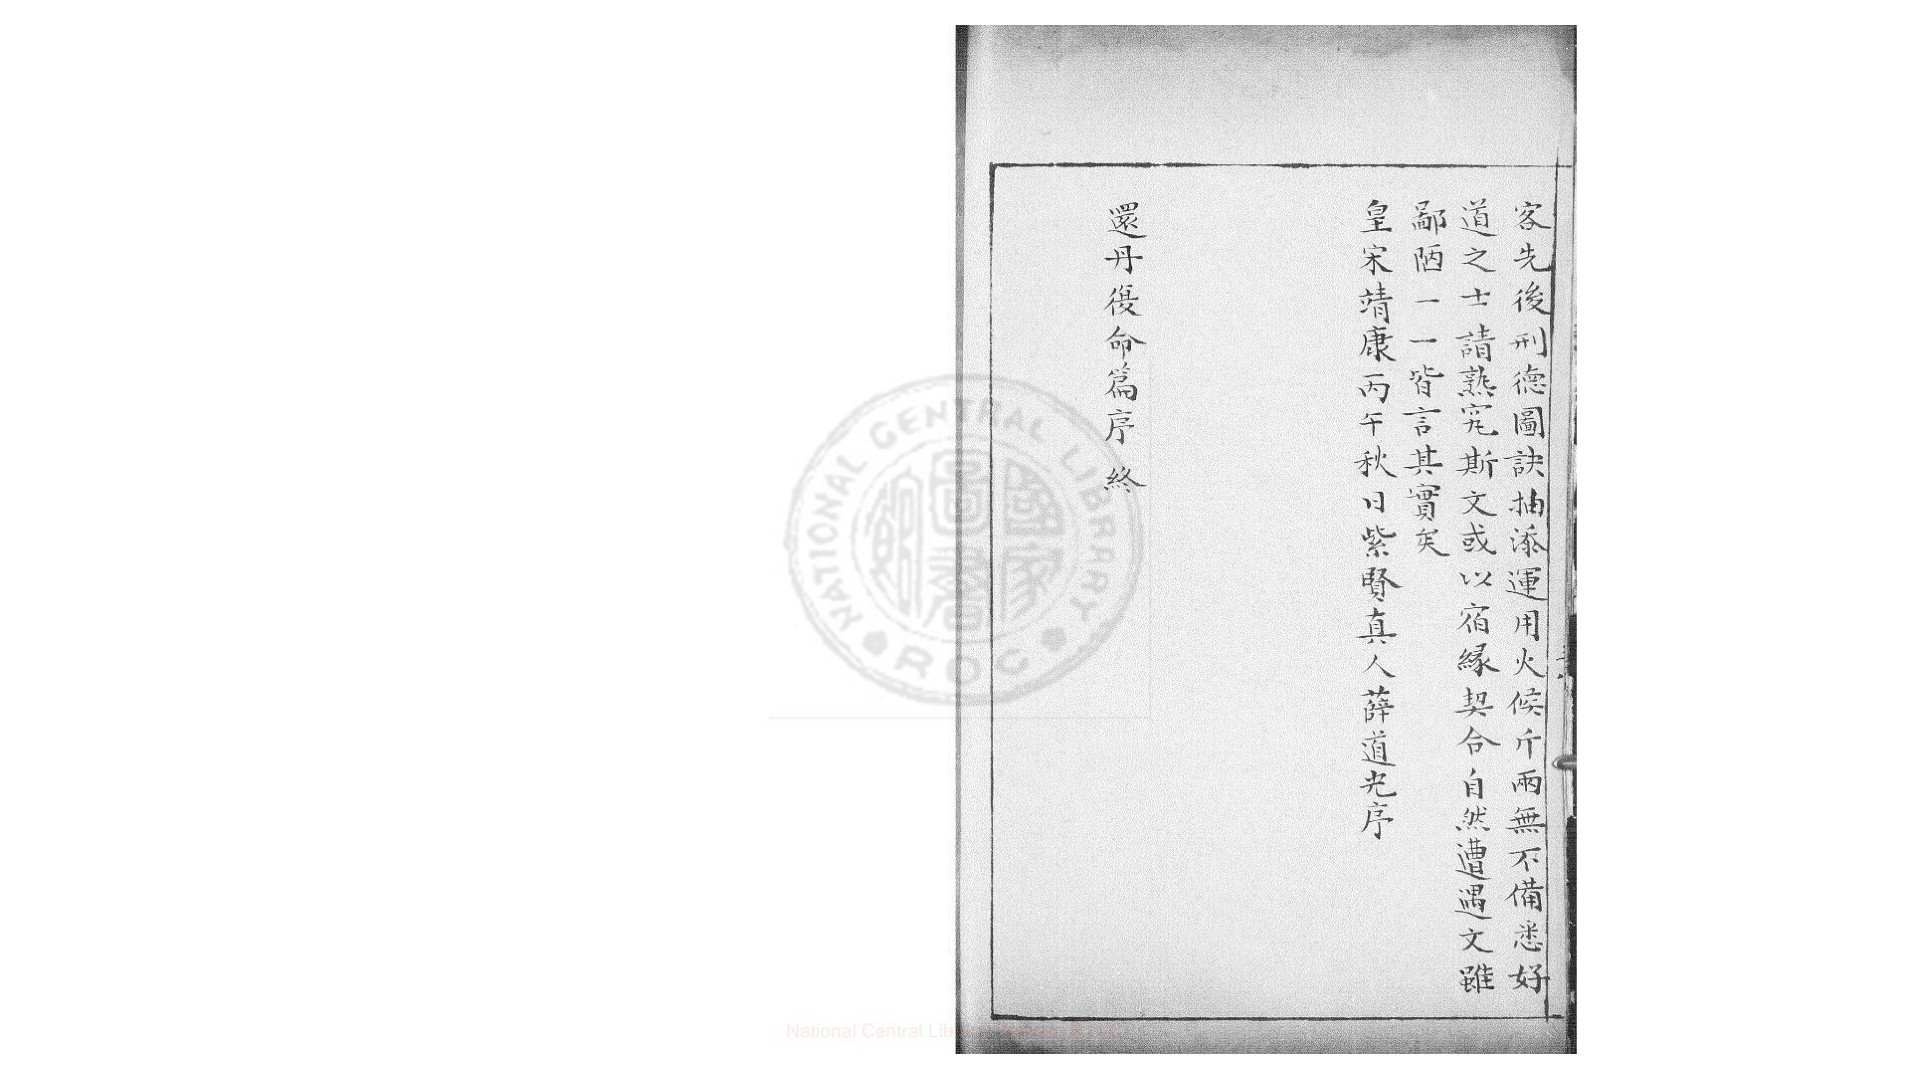 客先後刑德圖訣抽添運用火候斤兩無不備悉好
道之士請熟究斯文或以宿緣契合自然遭遇文雖
鄙陋一一皆言其實矣
皇宋靖康丙午秋日紫賢真人薛道光序
還丹復命篇序 終
NATIONAL CENTRAL LIBRARY
ROC
國家圖書館
National Central Lib